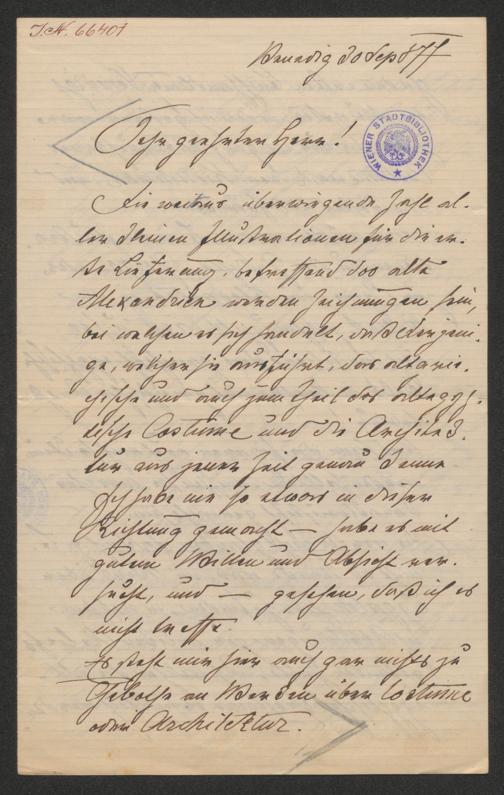 I.N. 66401
Venedig 30 Sep 877
WIENER STADTBIBLIOTHEK
Sehr geehrter Herr!
Die weitaus überwiegende Zahl al-
ler kleinen Illustrationen für die er-
ste Lieferung, betreffend das alte
Alexandrien werden Zeichnungen sein,
bei welchen es sich handelt, daß derjeni-
ge, welcher sie ausführt, das altgrie-
chische und auch zum Theil das altegyp-
tische Costume und die Architek-
tur aus jener Zeit genau kenne
Ich habe nie so etwas in dieser
Richtung gemacht — habe es mit
gutem Willen und Absicht ver-
sucht, und — gesehen, daß ich es
nicht treffe.
Es steht mir hier auch gar nichts zu
Gebothe an Werken über Costume
oder Architektur.